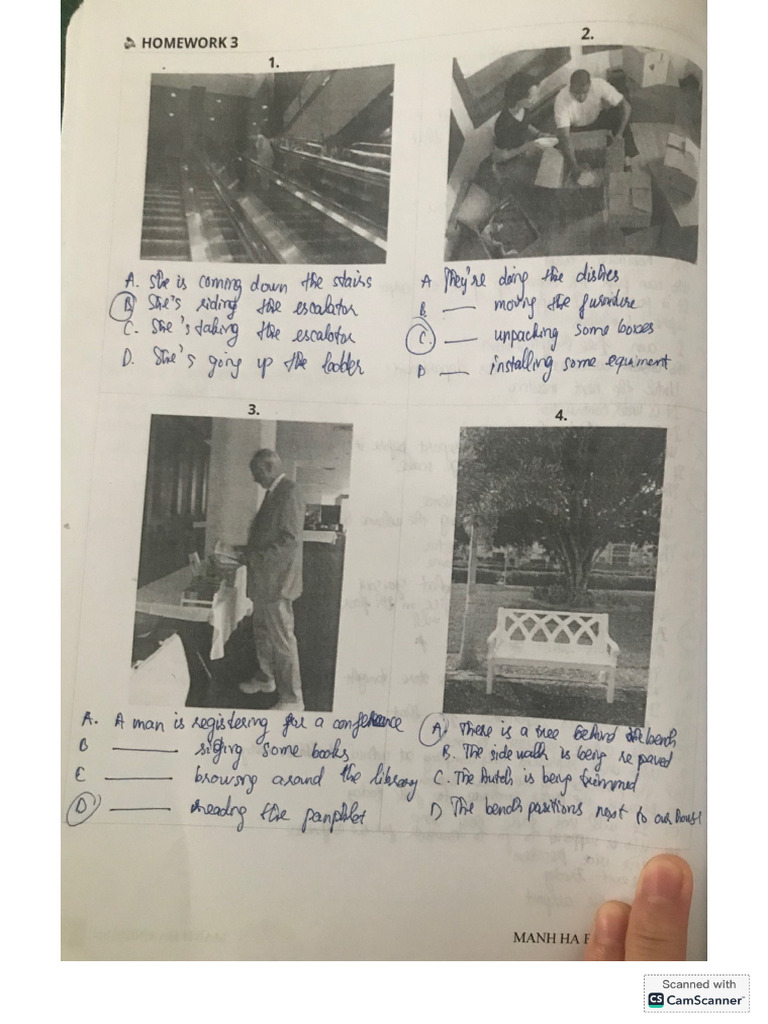 HOMEWORK 3
1.
2.
A. She is coming down the stairs
B. She's riding the escalator
C. She's taking the escalator
D. She's going up the ladder
A They're doing the dishes
B ___ moving the furniture
C. ___ unpacking some boxes
D ___ installing some equiment
3.
4.
A. A man is registering for a conference
B ___ signing some books
C ___ browsing around the library
D ___ reading the pamphlet
A. There is a tree behind the bench
B. The sidewalk is being repaved
C. The is being trimmed
D The bench positions next to our
MANH HA
Scanned with
CS CamScanner